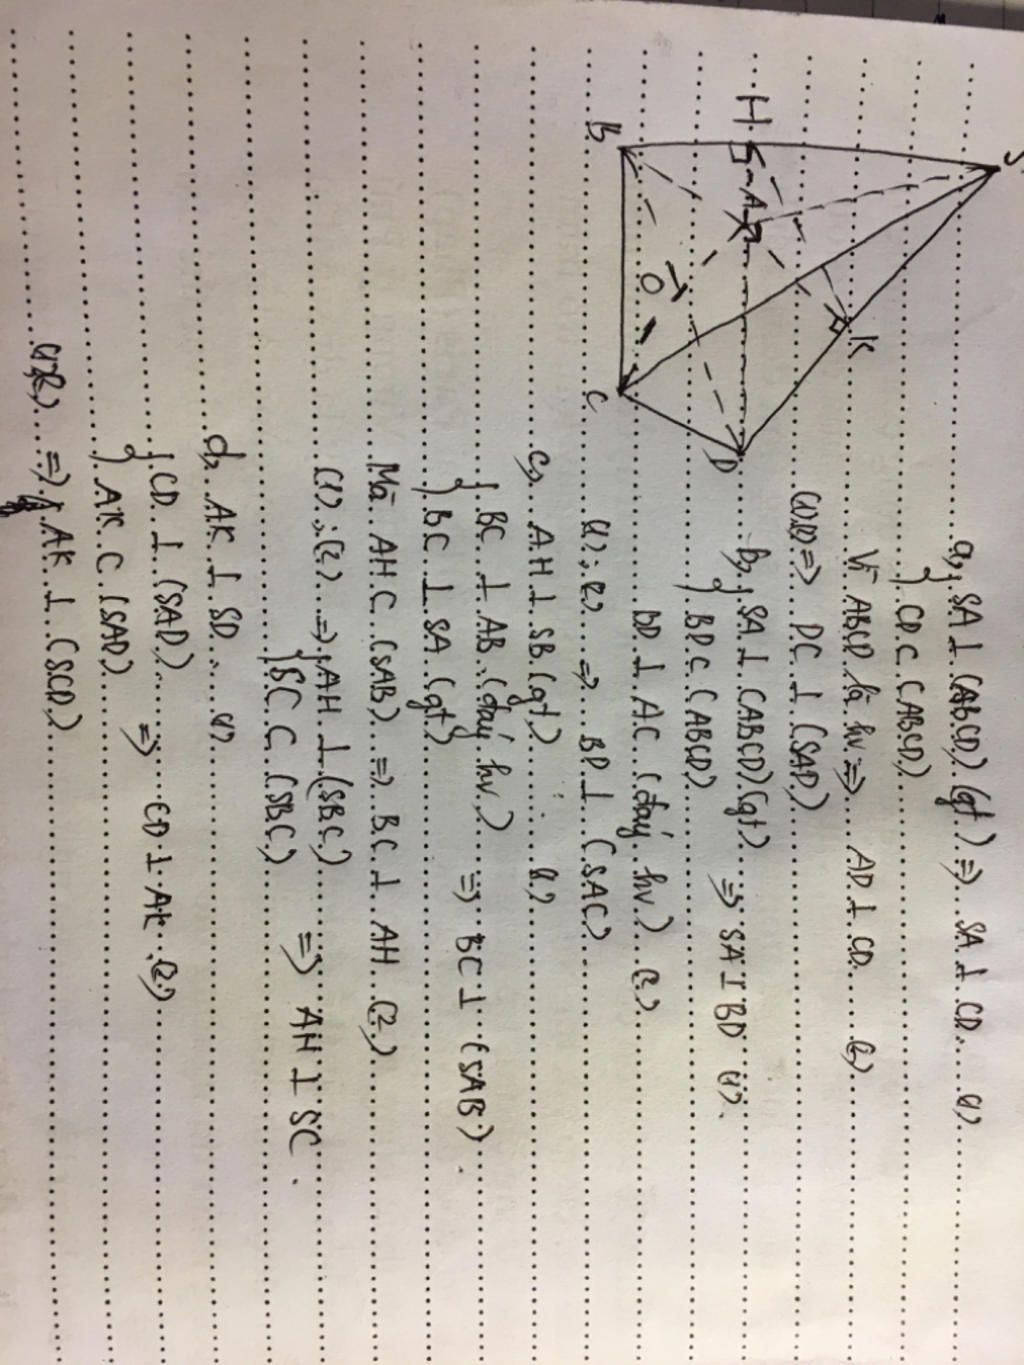 S
H
A
B
O
K
C
D
a, { SA ⊥ (ABCD) (gt) => SA ⊥ CD (1)
CD ⊂ (ABCD)
Vì ABCD là hv => AD ⊥ CD (2)
(1)(2) => DC ⊥ (SAD)
b, { SA ⊥ (ABCD) (gt) => SA ⊥ BD (1)
BD ⊂ (ABCD)
BD ⊥ AC (đáy hv) (2)
(1); (2) => BD ⊥ (SAC)
c, AH ⊥ SB (gt) (1)
{ BC ⊥ AB (đáy hv) => BC ⊥ (SAB).
BC ⊥ SA (gt)
Mà AH ⊂ (SAB) => BC ⊥ AH (2)
(1); (2) => { AH ⊥ (SBC) => AH ⊥ SC.
SC ⊂ (SBC)
d, AK ⊥ SD (1)
{ CD ⊥ (SAD) => CD ⊥ AK (2)
AK ⊂ (SAD)
(1)(2) => AK ⊥ (SCD)